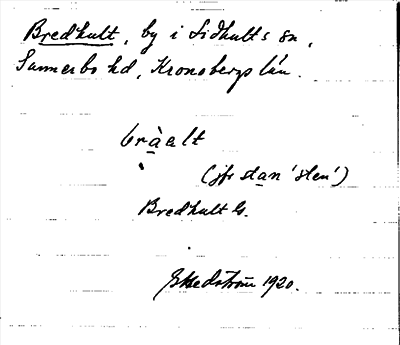 Bredhult, by i Lidhults sn,
Sunnerbo hd, Kronobergs län.
bràalt
(jfr stan 'sten')
Bredhult G.
Hedström 1920.